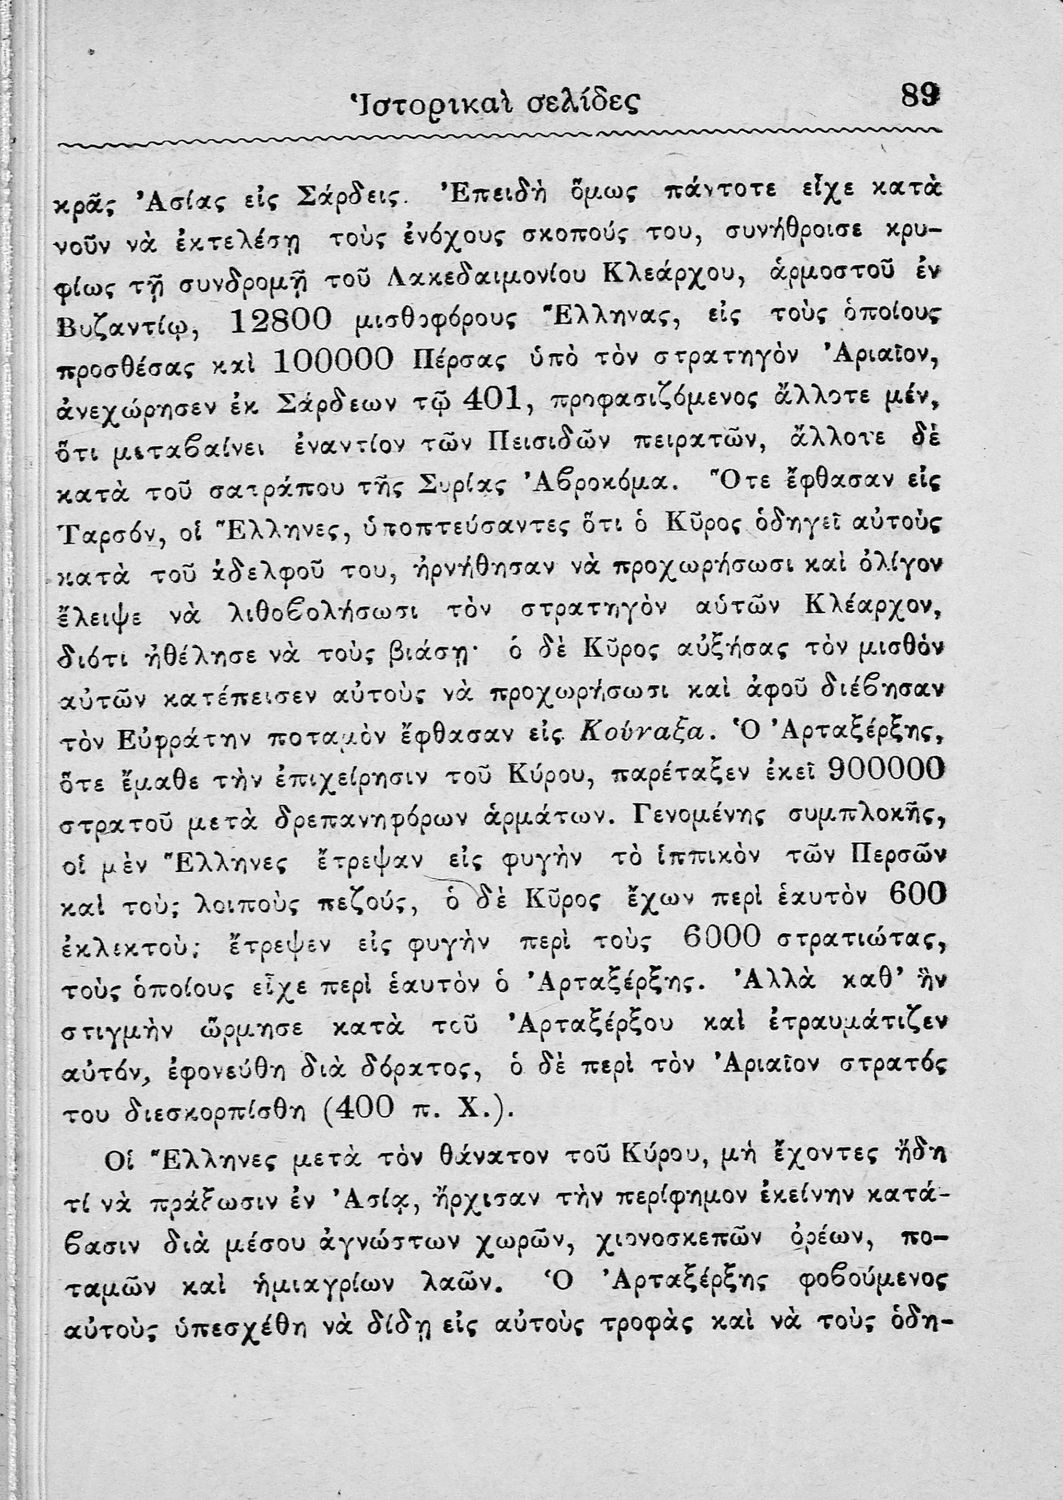 Ἱστορικαὶ σελίδες 89
κρᾶς Ἀσίας εἰς Σάρδεις. Ἐπειδὴ ὅμως πάντοτε εἶχε κατὰ
νοῦν νὰ ἐκτελέσῃ τοὺς ἐνόχους σκοπούς του, συνήθροισε κρυ-
φίως τῇ συνδρομῇ τοῦ Λακεδαιμονίου Κλεάρχου, ἁρμοστοῦ ἐν
Βυζαντίῳ, 12800 μισθοφόρους Ἕλληνας, εἰς τοὺς ὁποίους
προσθέσας καὶ 100000 Πέρσας ὑπὸ τὸν στρατηγὸν Ἀριαῖον,
ἀνεχώρησεν ἐκ Σάρδεων τῷ 401, προφασιζόμενος ἄλλοτε μέν,
ὅτι μεταβαίνει ἐναντίον τῶν Πεισιδῶν πειρατῶν, ἄλλοτε δὲ
κατὰ τοῦ σατράπου τῆς Συρίας Ἀβροκόμα. Ὅτε ἔφθασαν εἰς
Ταρσόν, οἱ Ἕλληνες, ὑποπτεύσαντες ὅτι ὁ Κῦρος ὁδηγεῖ αὐτοὺς
κατὰ τοῦ ἀδελφοῦ του, ἠρνήθησαν νὰ προχωρήσωσι καὶ ὀλίγον
ἔλειψε νὰ λιθοβολήσωσι τὸν στρατηγὸν αὑτῶν Κλέαρχον,
διότι ἠθέλησε νὰ τοὺς βιάσῃ· ὁ δὲ Κῦρος αὐξήσας τὸν μισθὸν
αὐτῶν κατέπεισεν αὐτοὺς νὰ προχωρήσωσι καὶ ἀφοῦ διέβησαν
τὸν Εὐφράτην ποταμὸν ἔφθασαν εἰς Κούναξα. Ὁ Ἀρταξέρξης,
ὅτε ἔμαθε τὴν ἐπιχείρησιν τοῦ Κύρου, παρέταξεν ἐκεῖ 900000
στρατοῦ μετὰ δρεπανηφόρων ἁρμάτων. Γενομένης συμπλοκῆς,
οἱ μὲν Ἕλληνες ἔτρεψαν εἰς φυγὴν τὸ ἱππικὸν τῶν Περσῶν
καὶ τοὺς λοιποὺς πεζούς, ὁ δὲ Κῦρος ἔχων περὶ ἑαυτὸν 600
ἐκλεκτοὺς ἔτρεψεν εἰς φυγὴν περὶ τοὺς 6000 στρατιώτας,
τοὺς ὁποίους εἶχε περὶ ἑαυτὸν ὁ Ἀρταξέρξης. Ἀλλὰ καθ’ ἣν
στιγμὴν ὥρμησε κατὰ τοῦ Ἀρταξέρξου καὶ ἐτραυμάτιζεν
αὐτόν, ἐφονεύθη διὰ δόρατος, ὁ δὲ περὶ τὸν Ἀριαῖον στρατός
του διεσκορπίσθη (400 π. Χ.).
Οἱ Ἕλληνες μετὰ τὸν θάνατον τοῦ Κύρου, μὴ ἔχοντες ἤδη
τί νὰ πράξωσιν ἐν Ἀσίᾳ, ἤρχισαν τὴν περίφημον ἐκείνην κατά-
βασιν διὰ μέσου ἀγνώστων χωρῶν, χιονοσκεπῶν ὀρέων, πο-
ταμῶν καὶ ἡμιαγρίων λαῶν. Ὁ Ἀρταξέρξης φοβούμενος
αὐτοὺς ὑπεσχέθη νὰ δίδῃ εἰς αὐτοὺς τροφὰς καὶ νὰ τοὺς ὁδη-